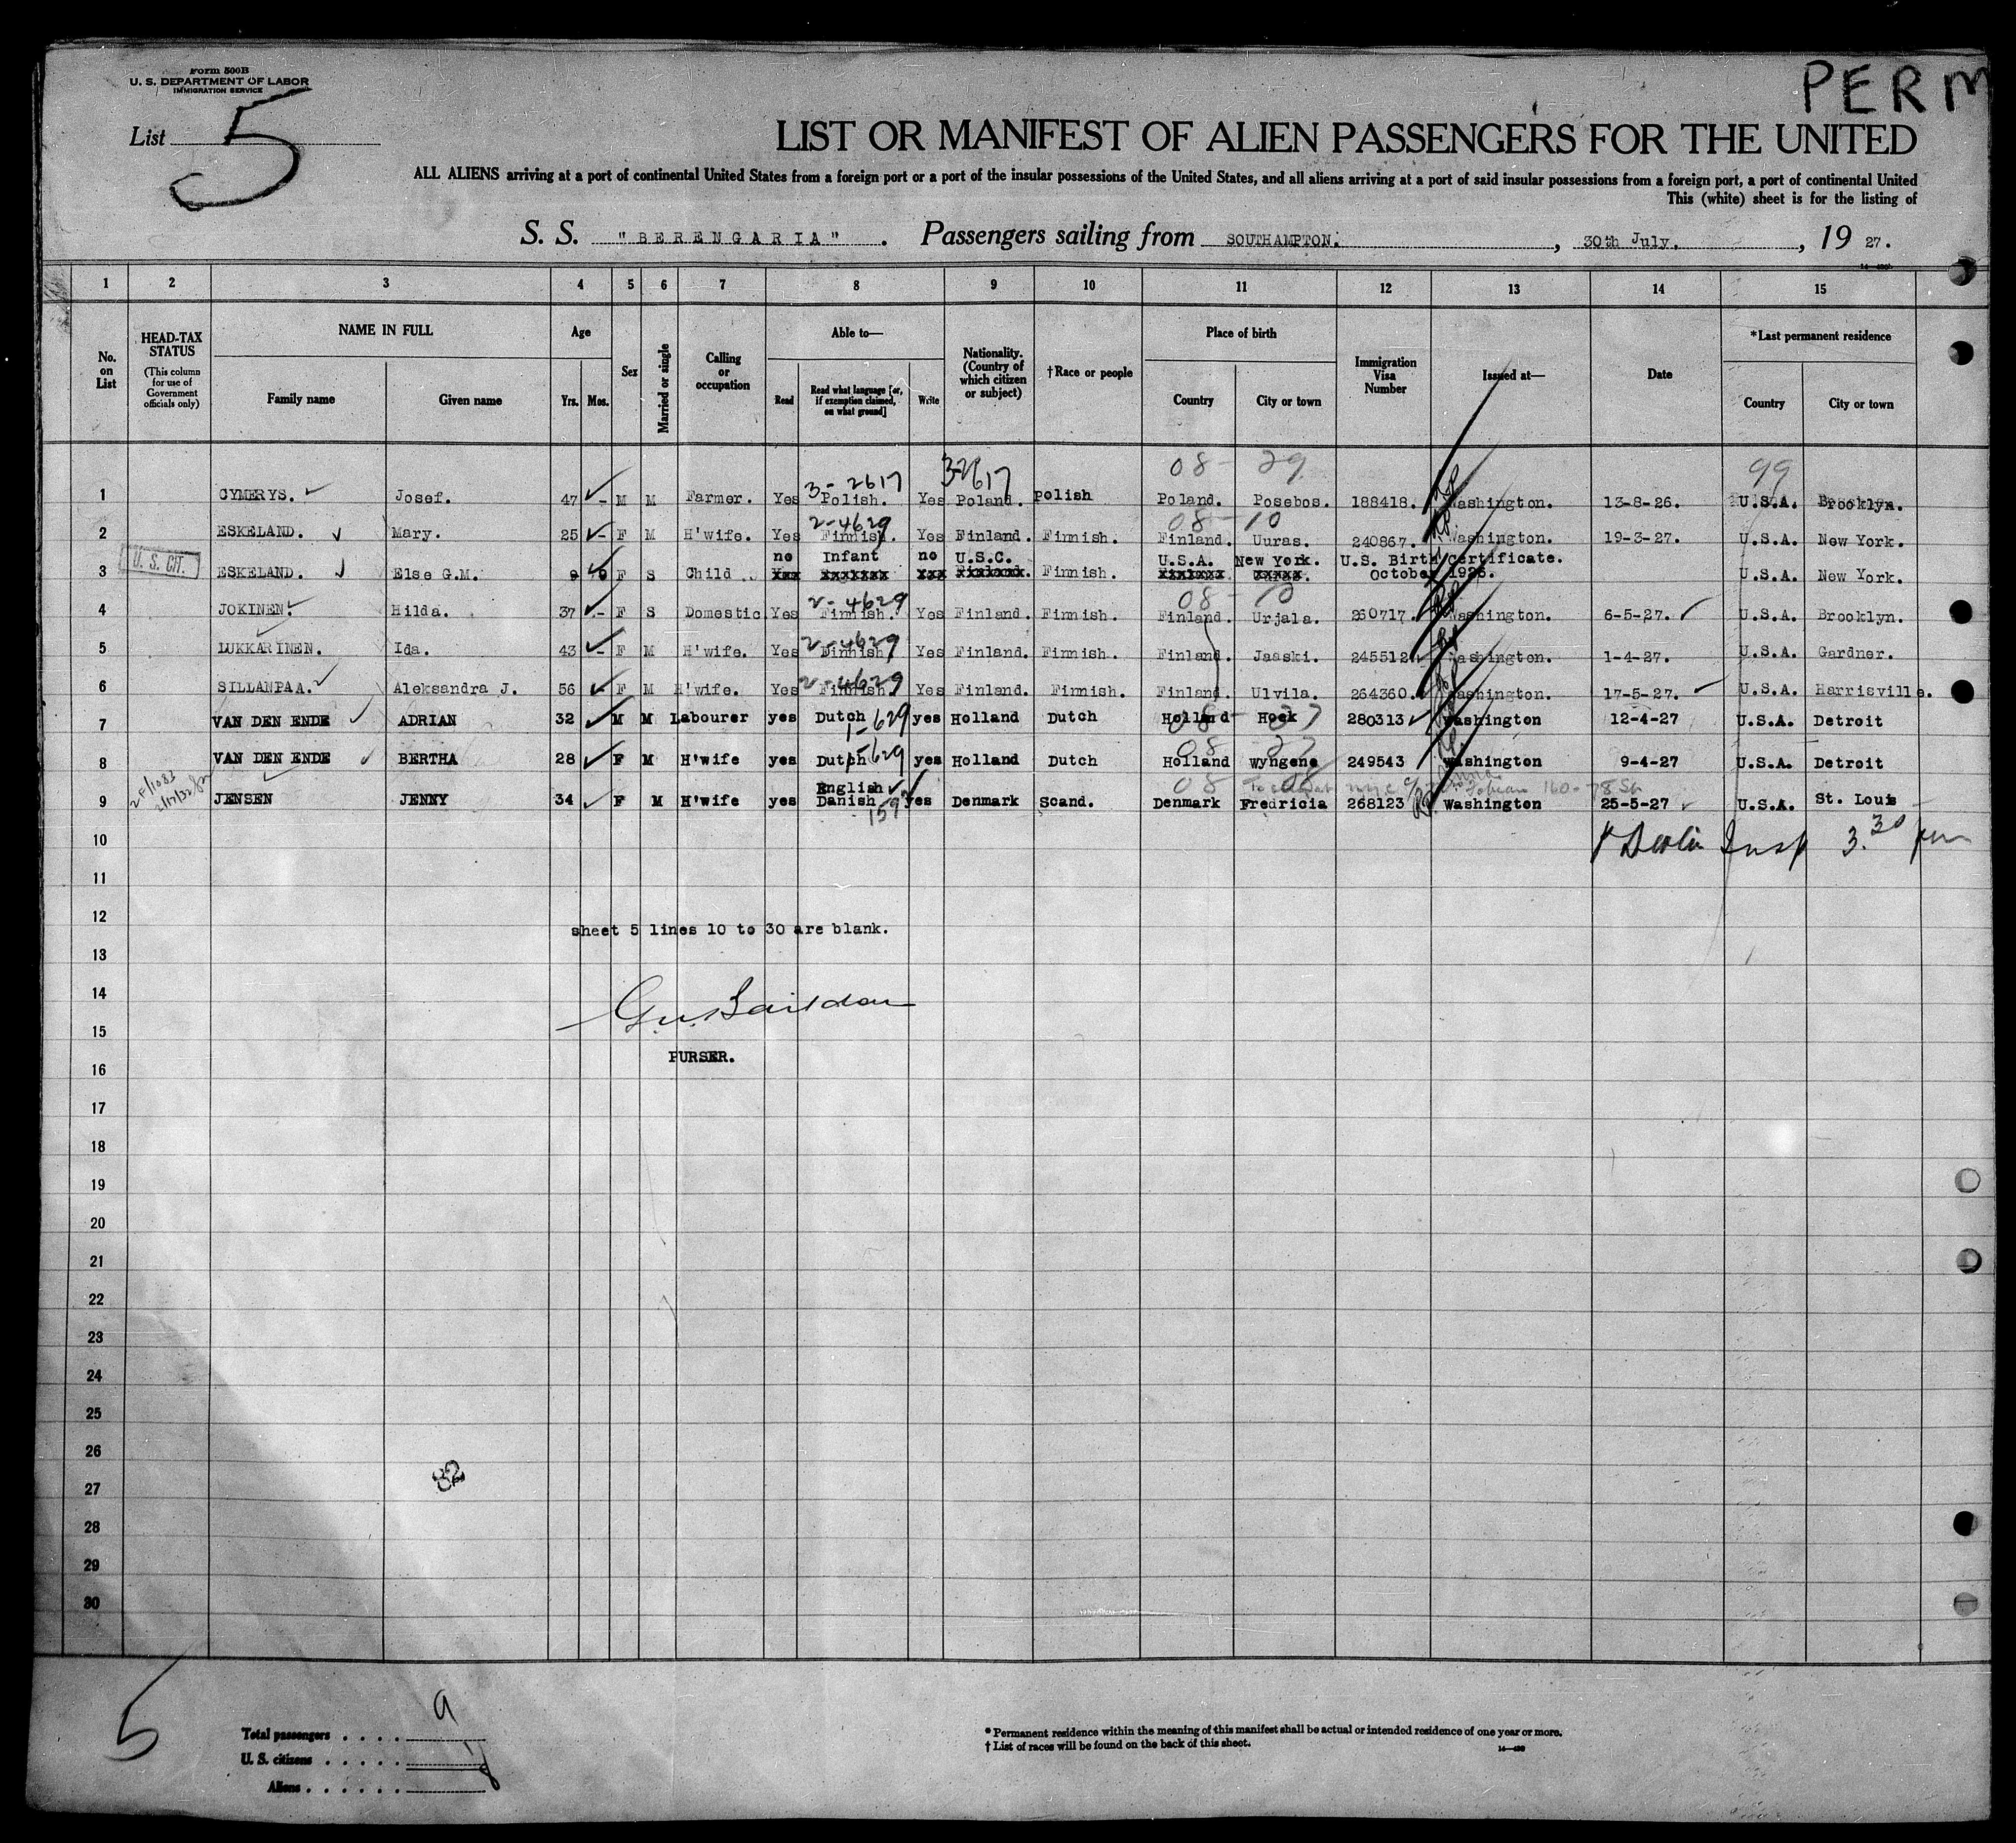 Form 500B
U. S. DEPARTMENT OF LABOR
IMMIGRATION SERVICE
PERM
List 5
LIST OR MANIFEST OF ALIEN PASSENGERS FOR THE UNITED
ALL ALIENS arriving at a port of continental United States from a foreign port or a port of the insular possessions of the United States, and all aliens arriving at a port of said insular possessions from a foreign port, a port of continental United
This (white) sheet is for the listing of
S. S. "BERENGARIA". Passengers sailing from SOUTHAMPTON. , 30th July. , 19 27.
1 2 3 4 5 6 7 8 9 10 11 12 13 14 15
No. on List
HEAD-TAX STATUS
(This column for use of Government officials only)
NAME IN FULL
Family name Given name
Age
Yrs. Mos.
Sex
Married or single
Calling or occupation
Able to—
Read
Read what language [or, if exemption claimed, on what ground]
Write
Nationality. (Country of which citizen or subject)
†Race or people
Place of birth
Country City or town
Immigration Visa Number
Issued at—
Date
*Last permanent residence
Country City or town
3-2617 3-2617 08-29 99
1 CYMERYS. Josef. 47 - M M Farmer. Yes Polish. Yes Poland. Polish Poland. Posebos. 188418. Washington. 13-8-26. U.S.A. Brooklyn.
2-4629 08-10
2 ESKELAND. Mary. 25 - F M H'wife. Yes Finnish. Yes Finland. Finnish. Finland. Uuras. 240867. Washington. 19-3-27. U.S.A. New York.
U. S. CIT. no Infant no U.S.C. U.S.A. New York. U.S. Birth Certificate.
3 ESKELAND. Else G.M. 9 F S Child Finnish. October 1926. U.S.A. New York.
2-4629 08-10
4 JOKINEN. Hilda. 37 - F S Domestic Yes Finnish. Yes Finland. Finnish. Finland. Urjala. 260717. Washington. 6-5-27. U.S.A. Brooklyn.
2-4629
5 LUKKARINEN. Ida. 43 - F M H'wife. Yes Finnish. Yes Finland. Finnish. Finland. Jaaski. 245512. Washington. 1-4-27. U.S.A. Gardner.
2-4629
6 SILLANPAA. Aleksandra J. 56 - F M H'wife. Yes Finnish. Yes Finland. Finnish. Finland. Ulvila. 264360. Washington. 17-5-27. U.S.A. Harrisville.
7 VAN DEN ENDE ADRIAN 32 M M Labourer yes Dutch 1-629 yes Holland Dutch Holland Hoek 280313 Washington 12-4-27 U.S.A. Detroit
1-629 08 27
8 VAN DEN ENDE BERTHA 28 F M H'wife yes Dutch yes Holland Dutch Holland Wyngene 249543 Washington 9-4-27 U.S.A. Detroit
English 08 160-78 St
9 JENSEN JENNY 34 F M H'wife yes Danish yes Denmark Scand. Denmark Fredricia 268123 Washington 25-5-27 U.S.A. St. Louis
10 Insp 3.30 pm
11
12
sheet 5 lines 10 to 30 are blank.
13
14
15
PURSER.
16
17
18
19
20
21
22
23
24
25
26
32
27
28
29
30
5
Total passengers . . . . 9
U. S. citizens . . . . .
Aliens . . . . . .
* Permanent residence within the meaning of this manifest shall be actual or intended residence of one year or more.
† List of races will be found on the back of this sheet.